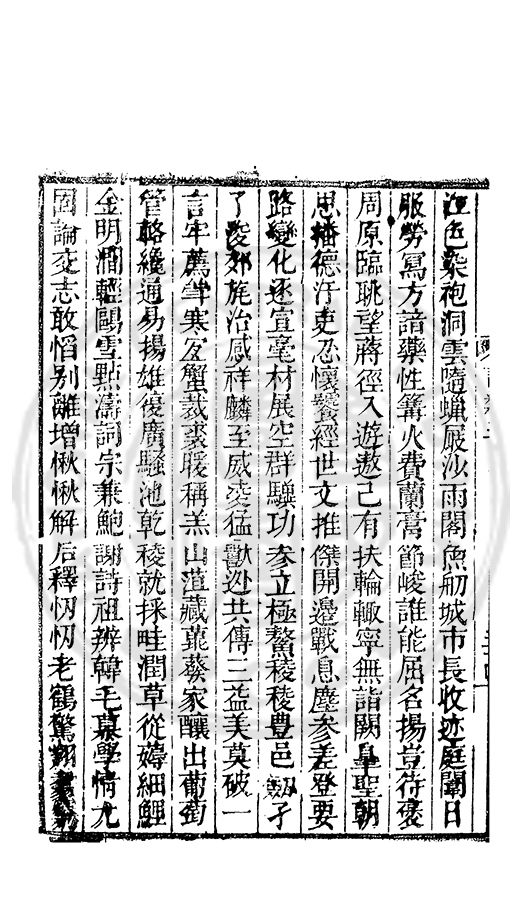 色染袍洞雲隨蠟屐沙雨閣魚舠城市長收迹庭闈日
服勞寫方諳藥性篝火費蘭膏節峻誰能屈名揚豈待褒
周原臨眺望蔣徑入遊遨已有扶輪輙寧無詣闕皇聖朝
思播德汙吏忍懷饕經世文推傑開邊戰息塵參差登要
路變化逐宣毫材展空群驥功參立極鰲稜稜豊邑 孑
了浚郊旄治感祥麟至威凌猛獸迯共傳三益美莫破一
言牢薦 寒分蟹裁裘暖稱羔山 藏蓷蔡家釀出葡萄
管輅纔通易揚雄復廣騷池乾稜就採畦潤草從薅細鯉
金明澗輕鷗雪點濤詞宗兼鮑謝詩祖辨韓毛慕學情尤
固論交志敢慆别離增愀愀解后釋忉忉老鶴驚翔